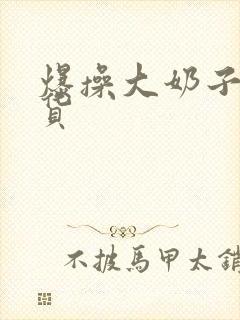 爆操大奶子
员
不披馬甲太銷